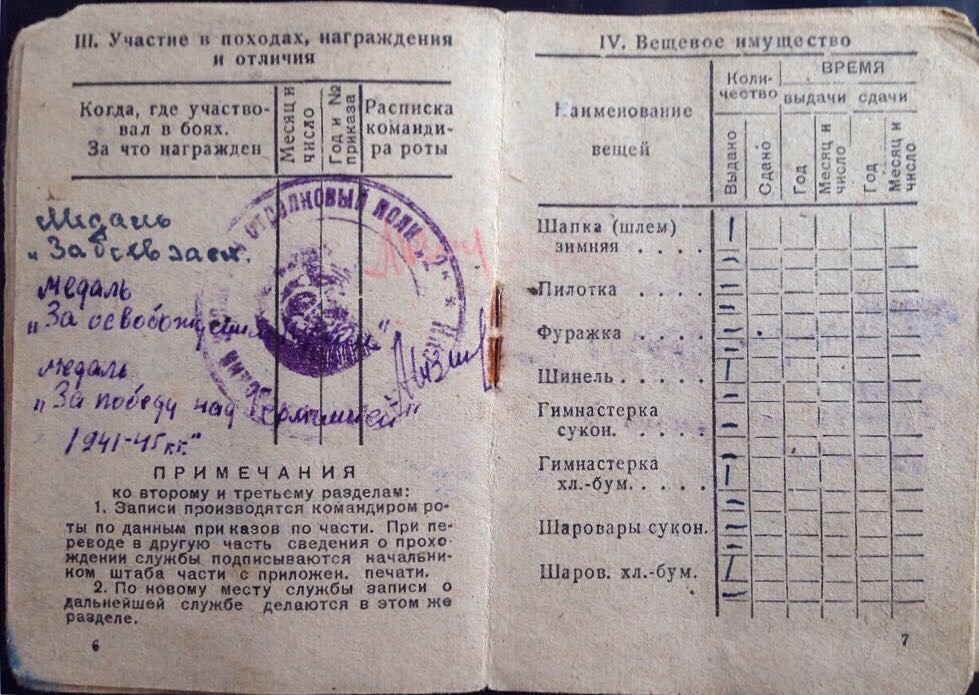 III. Участие в походах, награждения
и отличия
Когда, где участво-
вал в боях.
За что награжден
Месяц и
число
Год и №
приказа
Расписка
команди-
ра роты
Медаль
медаль
"За освобождение
медаль
"За победу над Германией"
1941-45 гг."
СТРЕЛКОВЫЙ ПОЛК
ПРИМЕЧАНИЯ
ко второму и третьему разделам:
1. Записи производятся командиром ро-
ты по данным приказов по части. При пе-
реводе в другую часть сведения о прохо-
ждении службы подписываются начальни-
ком штаба части с приложен. печати.
2. По новому месту службы записи о
дальнейшей службе делаются в этом же
разделе.
6
IV. Вещевое имущество
Наименование
вещей
Коли-
чество
ВРЕМЯ
выдачи
сдачи
Выдано
Сдано
Год
Месяц и
число
Год
Месяц и
число
Шапка (шлем)
зимняя . . . .
Пилотка . . . .
Фуражка . . . .
Шинель . . . . .
Гимнастерка
сукон. . . . . .
Гимнастерка
хл.-бум. . . . .
Шаровары сукон.
Шаров. хл.-бум.
7